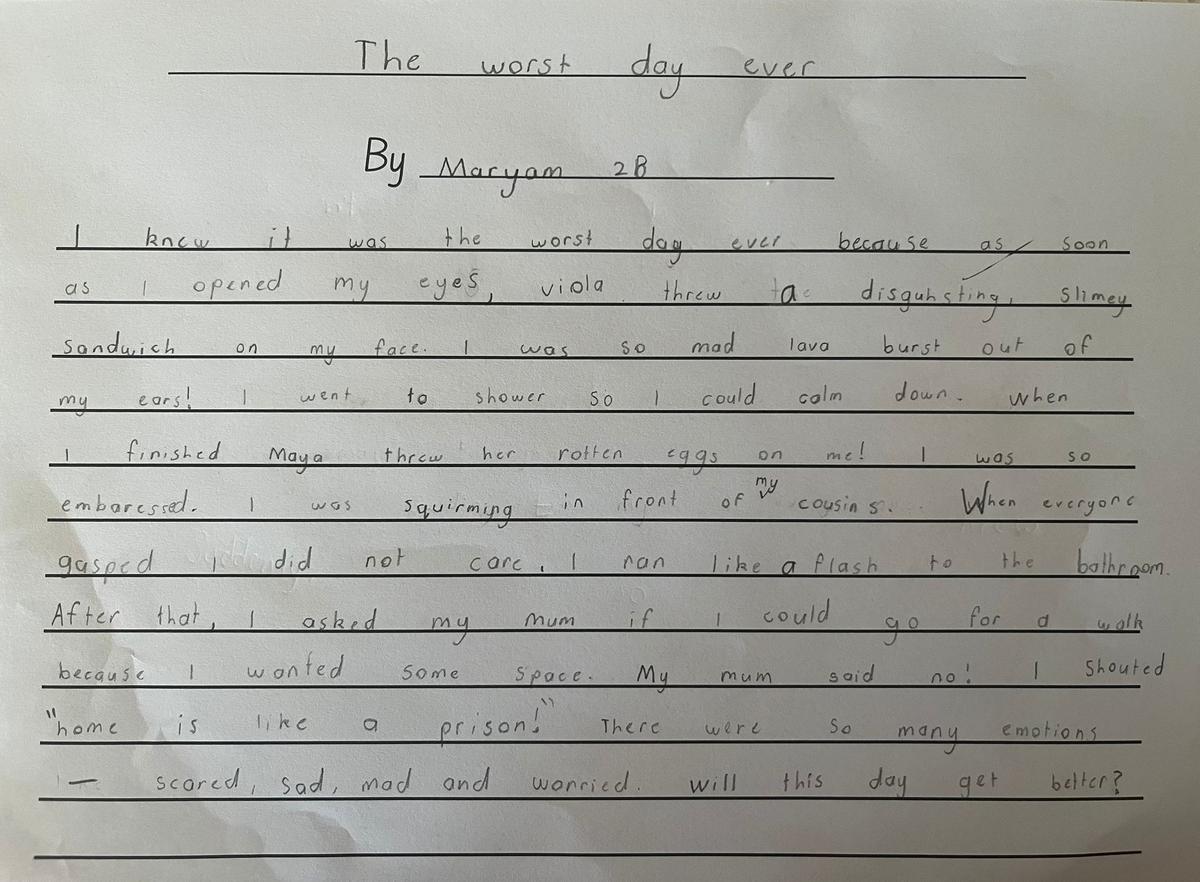 The worst day ever
By Maryam 2B
I knew it was the worst day ever because as soon
as I opened my eyes, viola threw a disguhsting, slimey
sandwich on my face. I was so mad lava burst out of
my ears! I went to shower so I could calm down. When
I finished Maya threw her rotten eggs on me! I was so
embaressed. I was squirming in front of my cousins. When everyone
gasped I did not care, I ran like a flash to the bathroom.
After that, I asked my mum if I could go for a walk
because I wanted some space. My mum said no! I shouted
"home is like a prison!" There were so many emotions
— scared, sad, mad and worried. will this day get better?